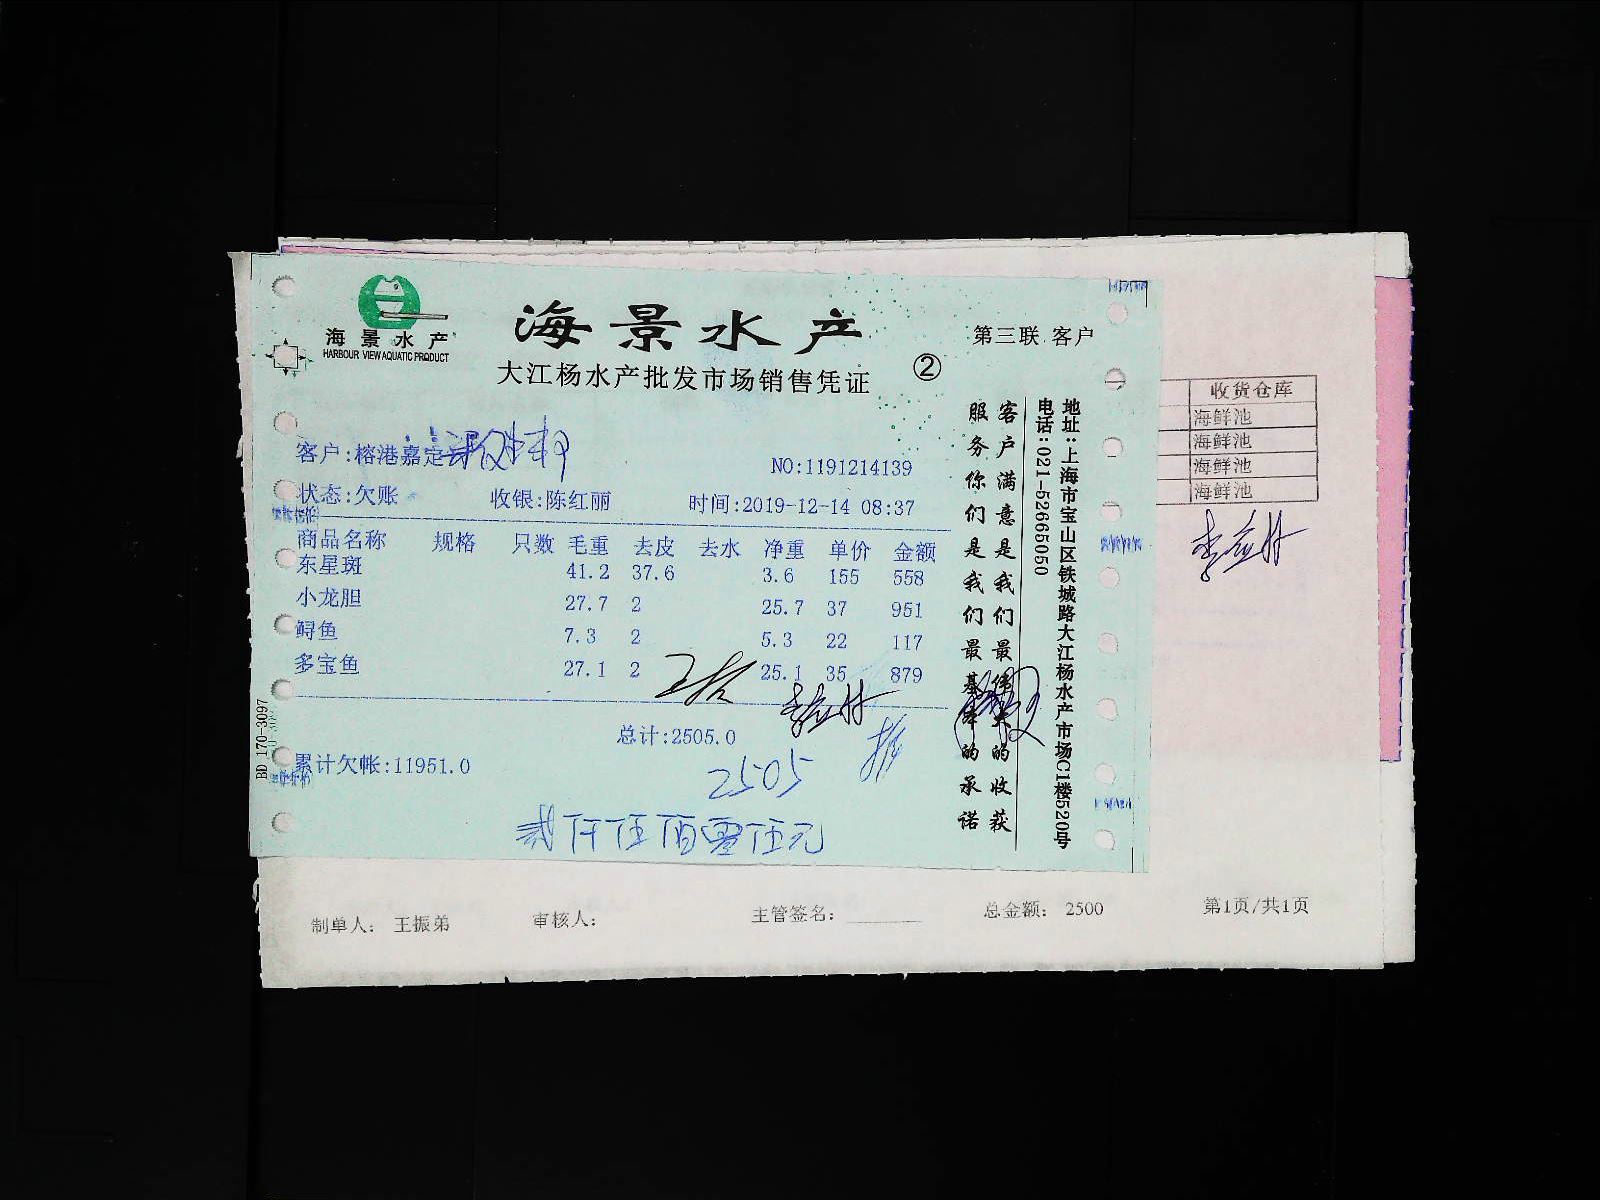 海景水产
HARBOUR VIEW AQUATIC PRODUCT
海景水产
第三联 客户
大江杨水产批发市场销售凭证 ②
客户:榕港嘉定
NO:1191214139
状态:欠账 收银:陈红丽 时间:2019-12-14 08:37
商品名称 规格 只数 毛重 去皮 去水 净重 单价 金额
东星斑 41.2 37.6 3.6 155 558
小龙胆 27.7 2 25.7 37 951
鲟鱼 7.3 2 5.3 22 117
多宝鱼 27.1 2 25.1 35 879
总计:2505.0
累计欠帐:11951.0
2505
贰仟伍佰零伍元
BD 170-3097
客户满意是我们最伟大的收获
服务你们是我们最基本的承诺
地址:上海市宝山区铁城路大江杨水产市场C1楼520号
电话:021-52665050
收货仓库
海鲜池
海鲜池
海鲜池
海鲜池
制单人: 王振弟 审核人: 主管签名: 总金额: 2500 第1页/共1页